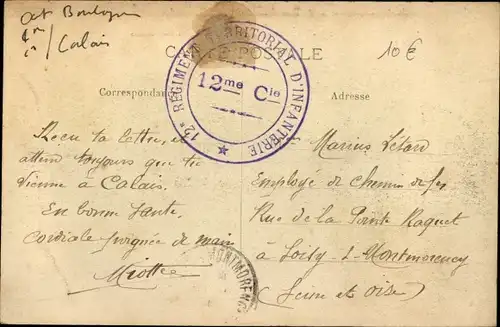 Calais
10 €
CARTE POSTALE
12e RÉGIMENT TERRITORIAL D'INFANTERIE
12me Cie
Correspondance
Adresse
Recu ta lettre, et
attend toujours que tu
vienne à Calais.
En bonne santé,
Cordiale poignée de main
Miotte
Marius Létard
Employé de chemin de fer
Rue de la Pointe Raquet
à Soisy-s-Montmorency
(Seine et Oise)
MONTMORENCY